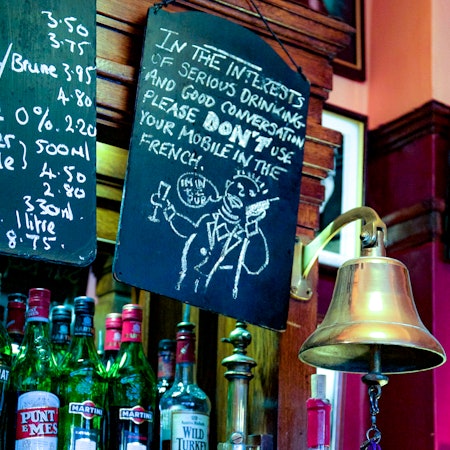 3.50
3.75
/Brune 3.95
4.80
0% 2.20
500ml
4.50
2.80
330ml
1 litre
8.75.
IN THE INTERESTS
OF SERIOUS DRINKING
AND GOOD CONVERSATION
PLEASE DON'T USE
YOUR MOBILE IN THE
FRENCH.
I'M IN
THE
PUB
PUNT
E MES
MARTINI
MARTINI
WILD
TURKEY